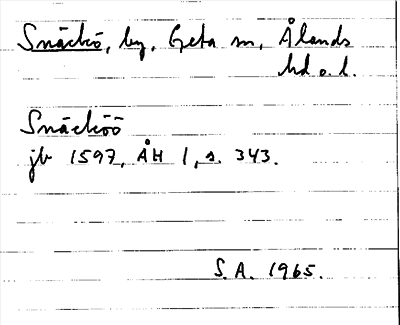 Snäckö, by, Geta sn, Ålands
hd o. l.
Snäcköö
jb 1597, ÅH 1, s. 343.
S.A. 1965.